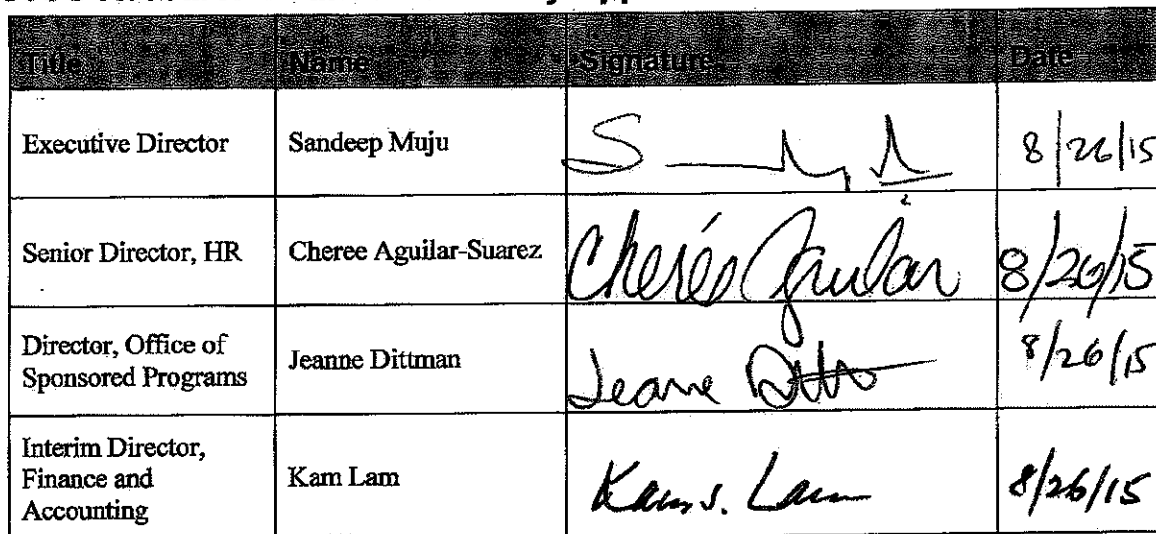 Title Name Signature Date
Executive Director Sandeep Muju 8/26/15
Senior Director, HR Cheree Aguilar-Suarez Cherée Aguilar 8/26/15
Director, Office of
Sponsored Programs Jeanne Dittman Jeanne 8/26/15
Interim Director,
Finance and
Accounting Kam Lam Kam S. Lam 8/26/15